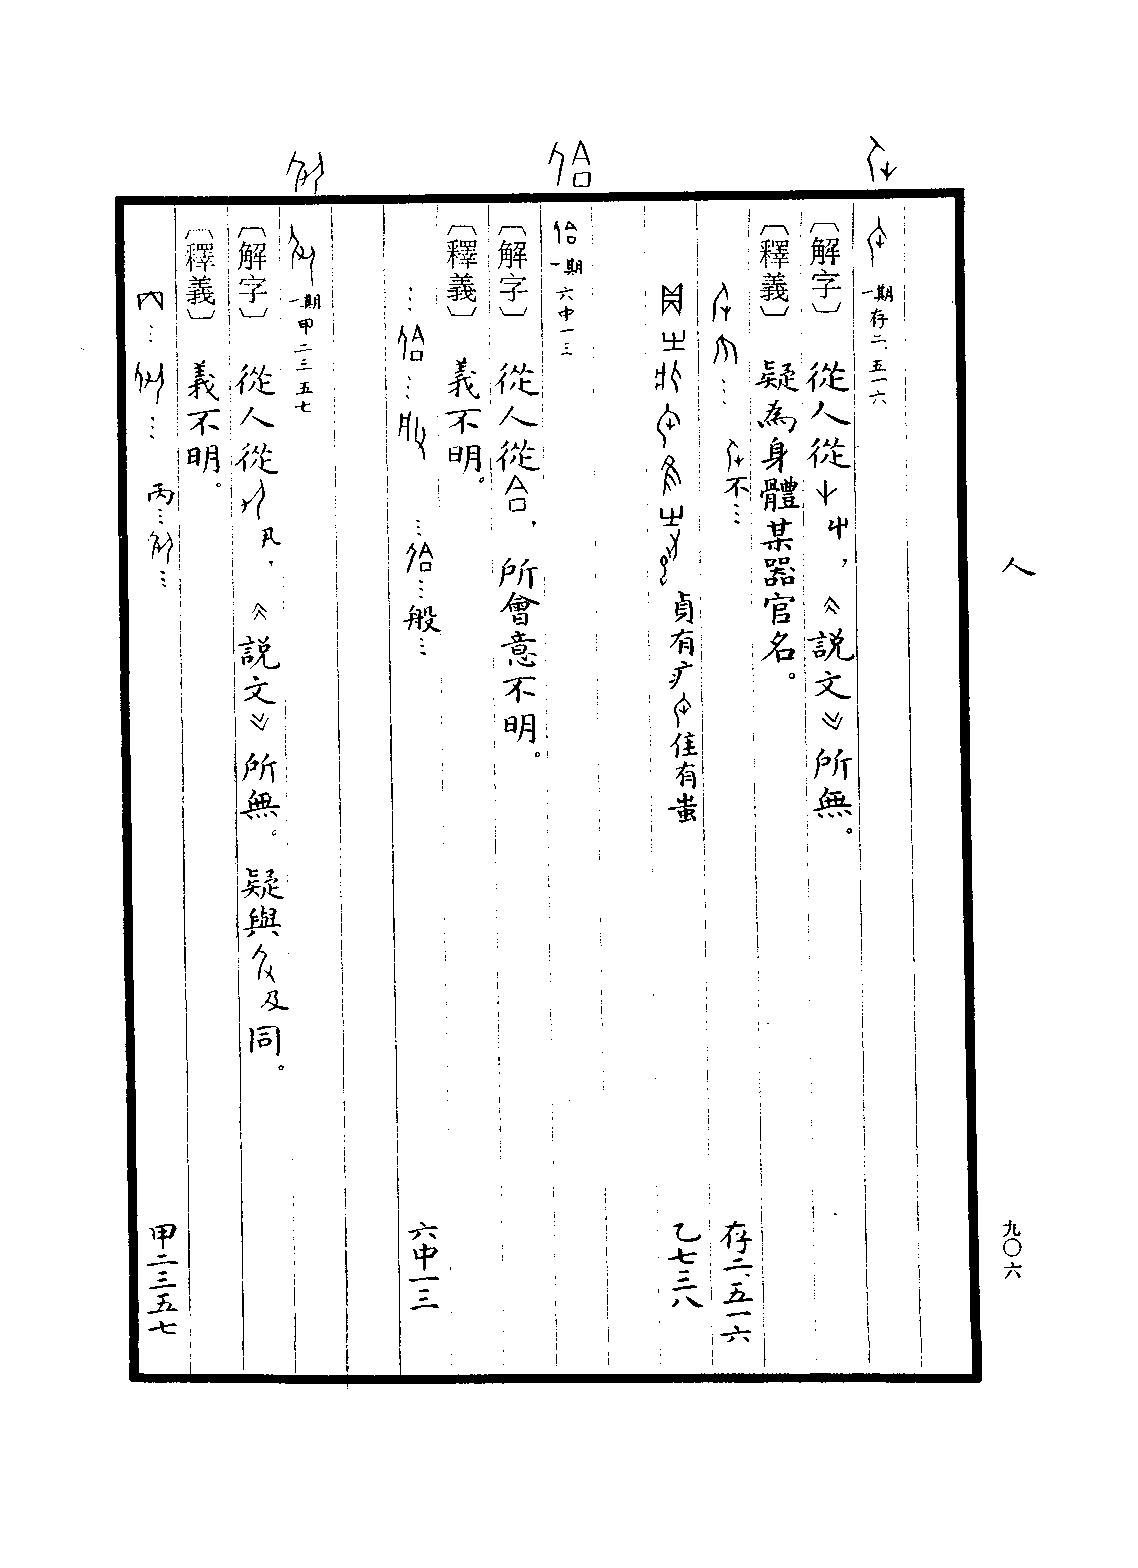 人
九〇六
一期 存二、五一六
〔解字〕 從人從屮，《説文》所無。
〔釋義〕 疑為身體某器官名。
…不…
存二、五一六
貞有疒隹有蚩
乙七三八
佮
佮 一期 六中一三
〔解字〕 從人從合，所會意不明。
〔釋義〕 義不明。
…佮…般…
六中一三
一期 甲二三五七
〔解字〕 從人從，《説文》所無。疑與及同。
〔釋義〕 義不明。
丙……
甲二三五七